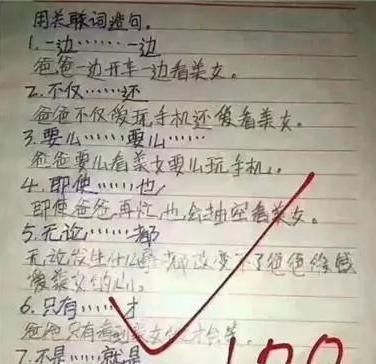 用关联词造句。
1.一边……一边
爸爸一边开车一边看美女。
2.不仅……还
爸爸不仅爱玩手机还爱看美女。
3.要么……要么……
爸爸要么看美女要么玩手机。
4.即使……也
即使爸爸再忙,也会抽空看美女。
5.无论……都
无论发生什么 都改变不了爸爸
爱美女的心。
6.只有……才
爸爸只有看到美女 才会笑
7.不是……就是
100